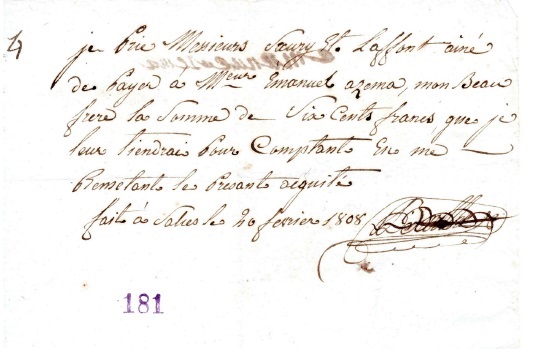 4
je prie Messieurs Fleury Et Laffont ainé
de payer à Mr Emanuel azema, mon Beau
frere la Somme de Six Cents francs que je
leur tiendrai pour Comptant En me
Remetant le presant acquité
fait à Salies le 20 fevrier 1808
181